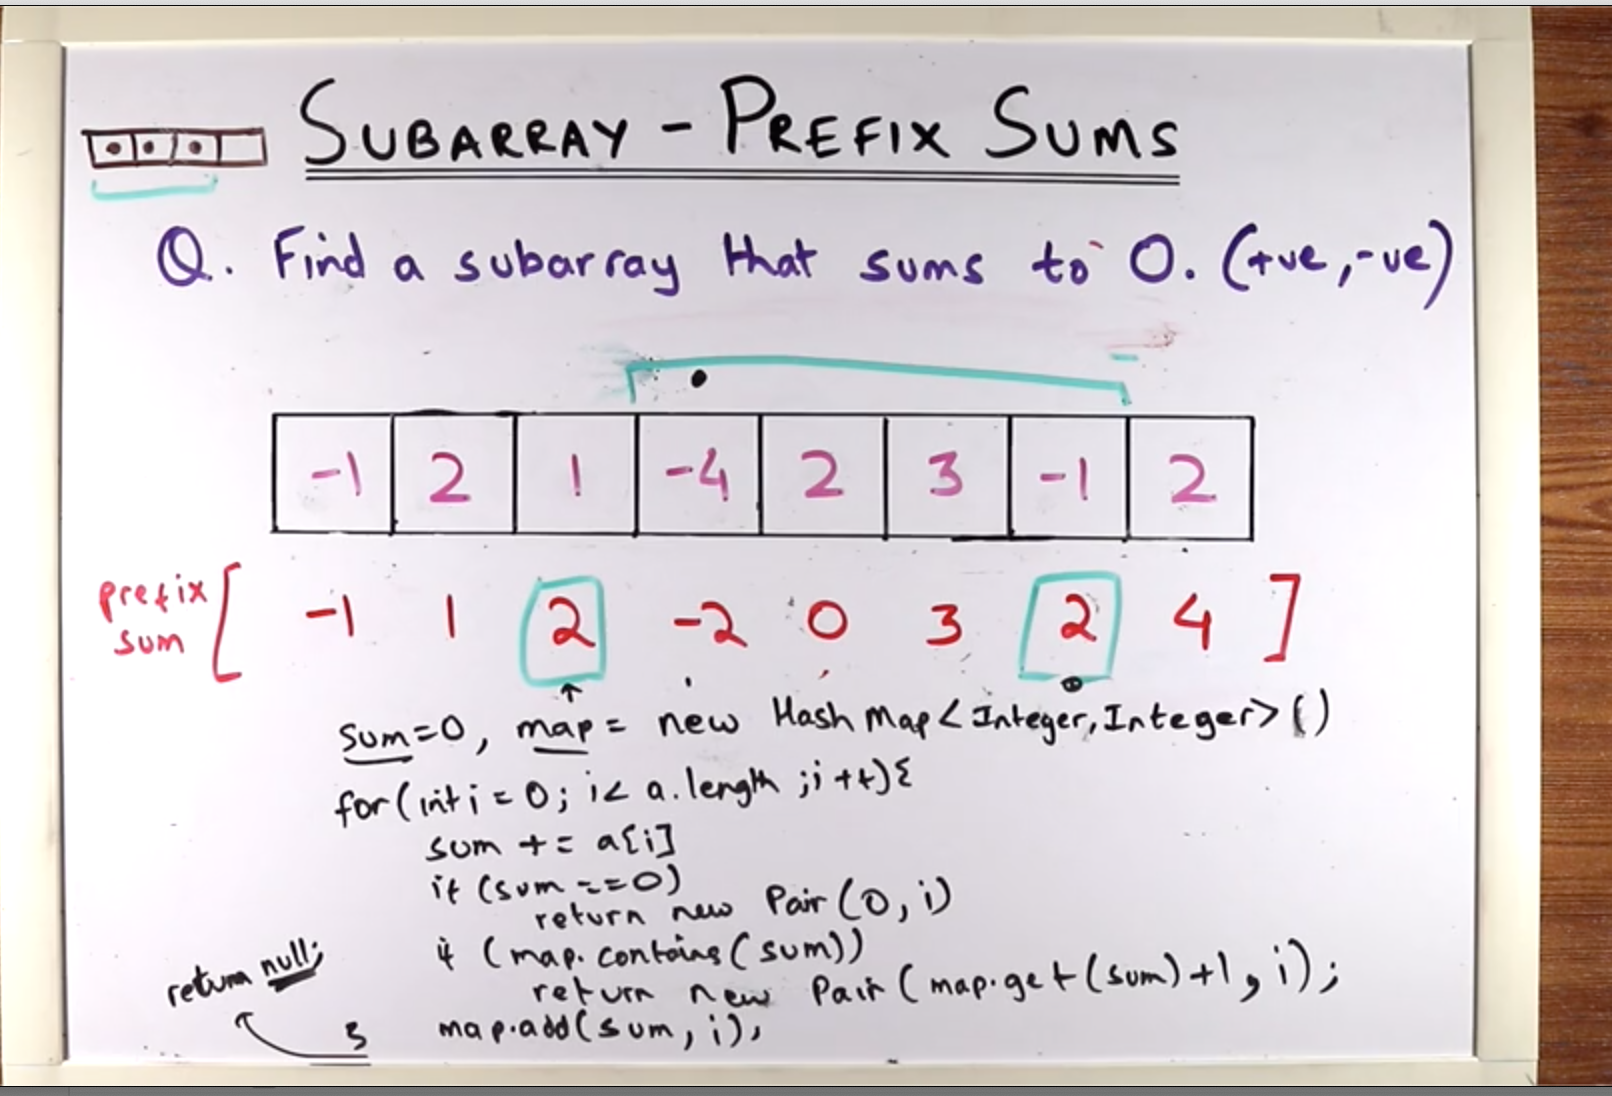 SUBARRAY - PREFIX SUMS
Q. Find a subarray that sums to 0. (+ve, -ve)
-1 2 1 -4 2 3 -1 2
prefix sum [ -1 1 2 -2 0 3 2 4 ]
sum=0, map = new HashMap<Integer,Integer>()
for(int i = 0; i< a.length ;i++){
sum += a[i]
if (sum ==0)
return new Pair(0, i)
if (map.contains(sum))
return new Pair(map.get(sum)+1, i);
map.add(sum, i);
}
return null;